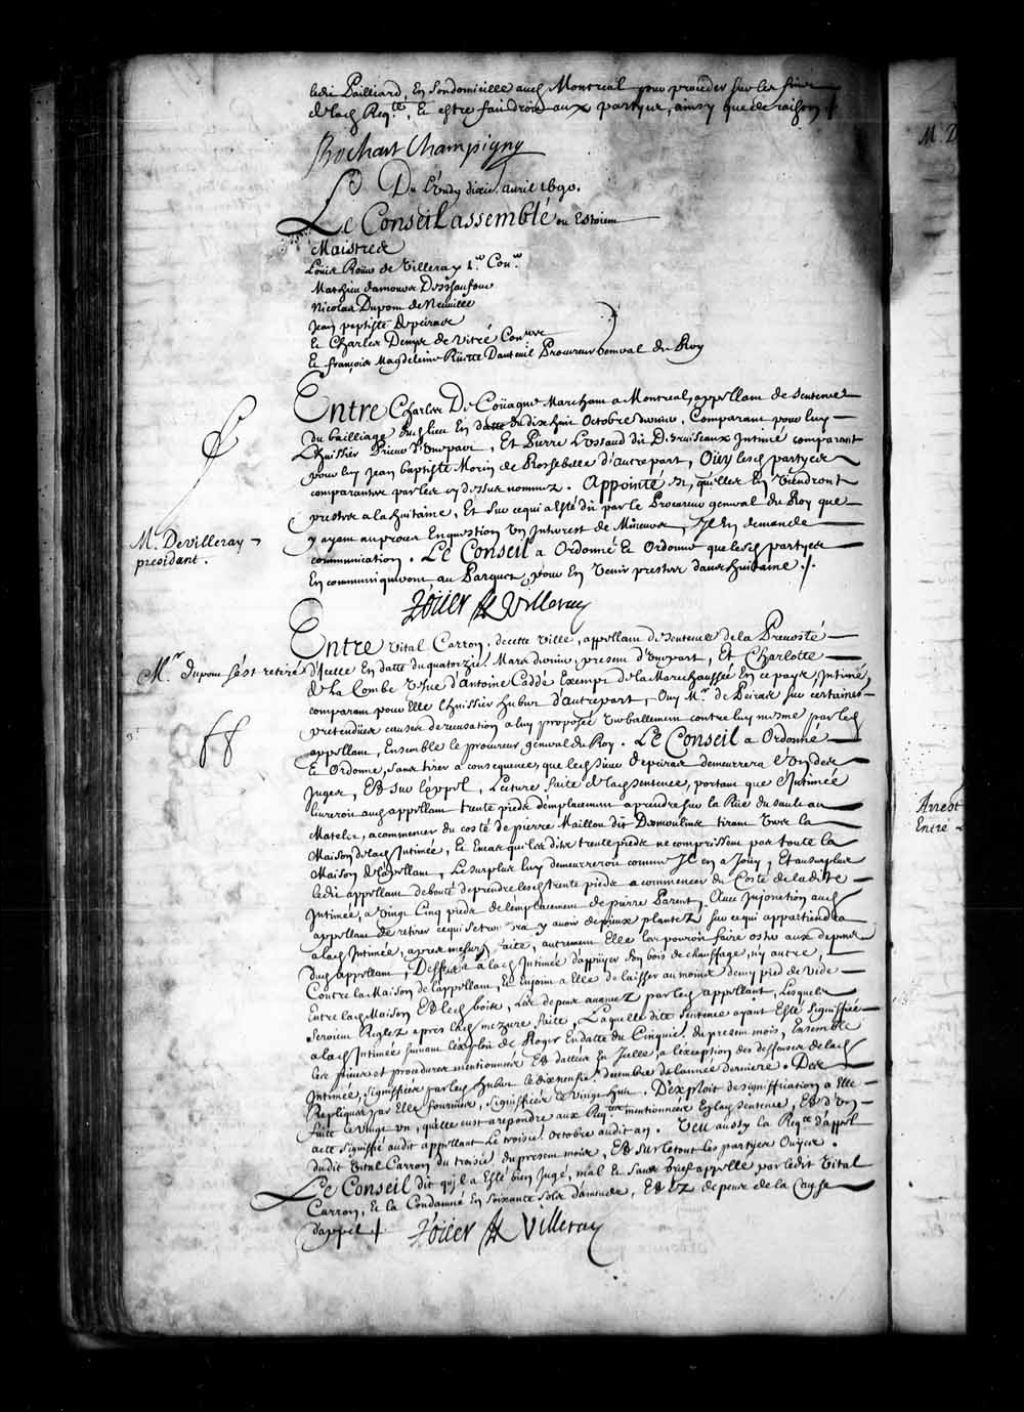 ledit Pailliard, En son domicille aud Montreal pour proceder sur les fins
de lad Reqte, Et estre fait droit aux partyes, ainsy que de raison
Bochart Champigny
Du Lundy dixie. avril 1690.
Le Conseil assemblé ou Estoient
Maistres
Louis Roüer de Villeray 1er Conser
Mathieu damours Deschaufour
Nicolas Dupont de Neuville
Jean baptiste depeiras
Et Charles Denys de Vitré Consers
Et françois Magdeleine Rüette Dauteuil Procureur general du Roy
Entre Charles De Coüagne Marchant a Montreal, appellant de sentence
du bailliage dud lieu En datte du dix huit Octobre dernier. Comparant pour luy
L'huissier Prieur d'Unepart, Et Pierre Lossaud dit Desruisseaux Intimé comparant
pour luy Jean baptiste Morin de Rochebelle d'autre part, Ouy lesd partyes
comparantes par les cy dessus nommez. Appointé Est, qu'elles En Viendront
prestes a la huitaine, Et Sur ce qui a Esté dit par le Procureur general du Roy que
y ayant au procez En question Un Interest de Mineurs, Il En demande
communication. Le Conseil a Ordonné Et Ordonne que lesd partyes
En communiqueront au Parquet, pour En Venir prestes dans huitaine ./.
M. Devilleray
president.
Roüer De Villeray
Entre Vital Carron, de cette Ville, appellant de Sentence de la Prevosté
Mr. dupont s'est retiré
d'Icelle En datte du quatorzie. Mars dernier, present d'Unepart, Et Charlotte
de la Combe Vefve d'Antoine Caddé Exempt de la Marechaussée En ce pays Intimée,
comparant pour Elle l'huissier hubert d'autrepart, Ouy Mr. de Peiras sur certaines
pretendües causes de recusation a luy proposées Verballement contre luy mesme par led
appellant, Ensemble le procureur general du Roy. Le Conseil a Ordonné
Et Ordonne, sans tirer a consequence, que led sieur depeiras demeurera l'Un des
Juges, Et sur l'appel, Lecture faite de lad sentence, portant que l'Intimée
livreroit aud appellant trente pieds d'emplacement a prendre sur la Rüe du sault au
Matelot, a commencer du costé de pierre Maillou dit Desmoulins tirant Vers la
Maison de lad Intimée, Et En cas que lesdits trente pieds ne comprissent pas toute la
Maison de l'appellant, Le surplus luy demeureroit comme Il en a Joüy, Et au surplus
ledit appellant debouté de prendre lesd trente pieds a commencer du Costé de ladite
Intimée, a Vingt Cinq pieds de l'emplacement de pierre Parent. Avec Injonction aud
appellant de retirer ce qui se trouvera y avoir de pieux plantez sur ce qui appartiendra
a lad Intimée, apres mesure faite, autrement Elle les pourroit faire oster aux depens
dud appellant, Deffense a lad Intimée d'appuyer son bois de chauffage, ny autre,
Contre la Maison de l'appellant, Et Enjoint a Elle de laisser au moins demy pied de Vide
Entre lad Maison Et led bois, Les depens avancez par led appellant, Lesquels
seroient Reglez apres lad mezure faite, Laquelle dite sentence ayant Esté Signiffiée
a lad Intimée suivant l'exploit de Roger En datte du Cinquie. du present mois, Ensemble
les pieces et procedures mentionnées Et dattées En Icelle, a l'exception des deffenses de lad
Intimée, signiffiées par led hubert le dix neufie. decembre de l'année derniere. Des
Repliques par Elle fournies, signiffiées le Vingt huit. D'exploit de signiffication a Elle
faite le Vingt Un, qu'elle eust a repondre aux Reqtes mentionnées En lad sentence, Et d'Un
acte signiffié audit appellant Le troisie. Octobre audit an. Veu aussy la Reqte d'appel
dudit Vital Carron du troisie. du present mois, Et sur le tout les partyes Ouyes.
Le Conseil dit qu'Il a Esté bien Jugé, mal Et sans Grief appellé par ledit Vital
Carron, Et la Condamné En soixante sols d'amende, Et Ez depens de la Cause
d'appel
Roüer De Villeray
M. D
Arrest
Entre